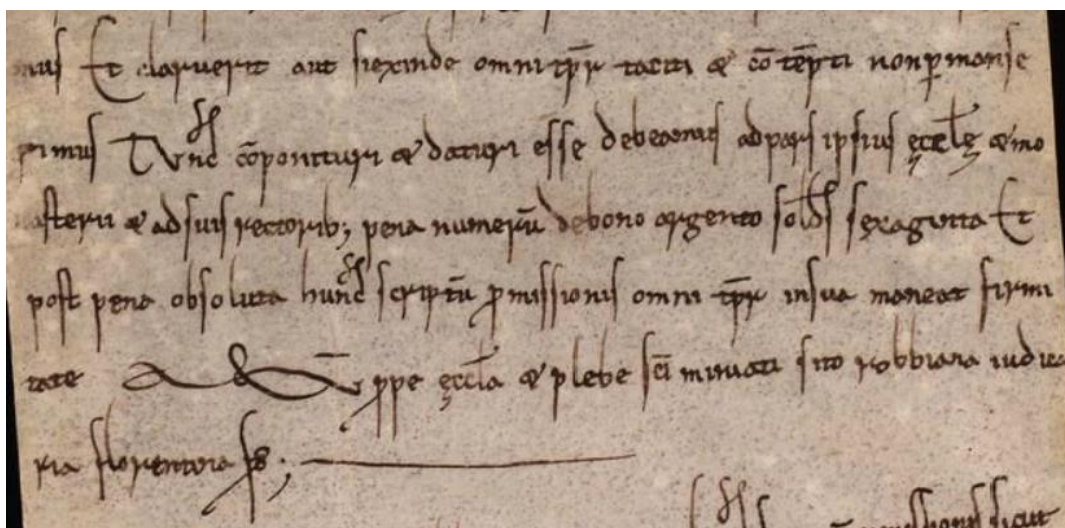 nus Et claruerit aut si exinde omni tp̄r taciti & cōtēpti non ꝑmanse
rimus Tunc cōponituri & daturi esse debeamus ad pars ipsius ęccl̄ę & mo
nasterii & ad suis rectorib; pena numerū de bono argento sold̄s sexaginta Et
post pena obsoluta hunc scriptū ꝓmissionis omni tp̄r in sua maneat firmi
tate ꝓpe ęccl̄a & plebe sc̄i miniati sito robbiana iudica
ria florentina